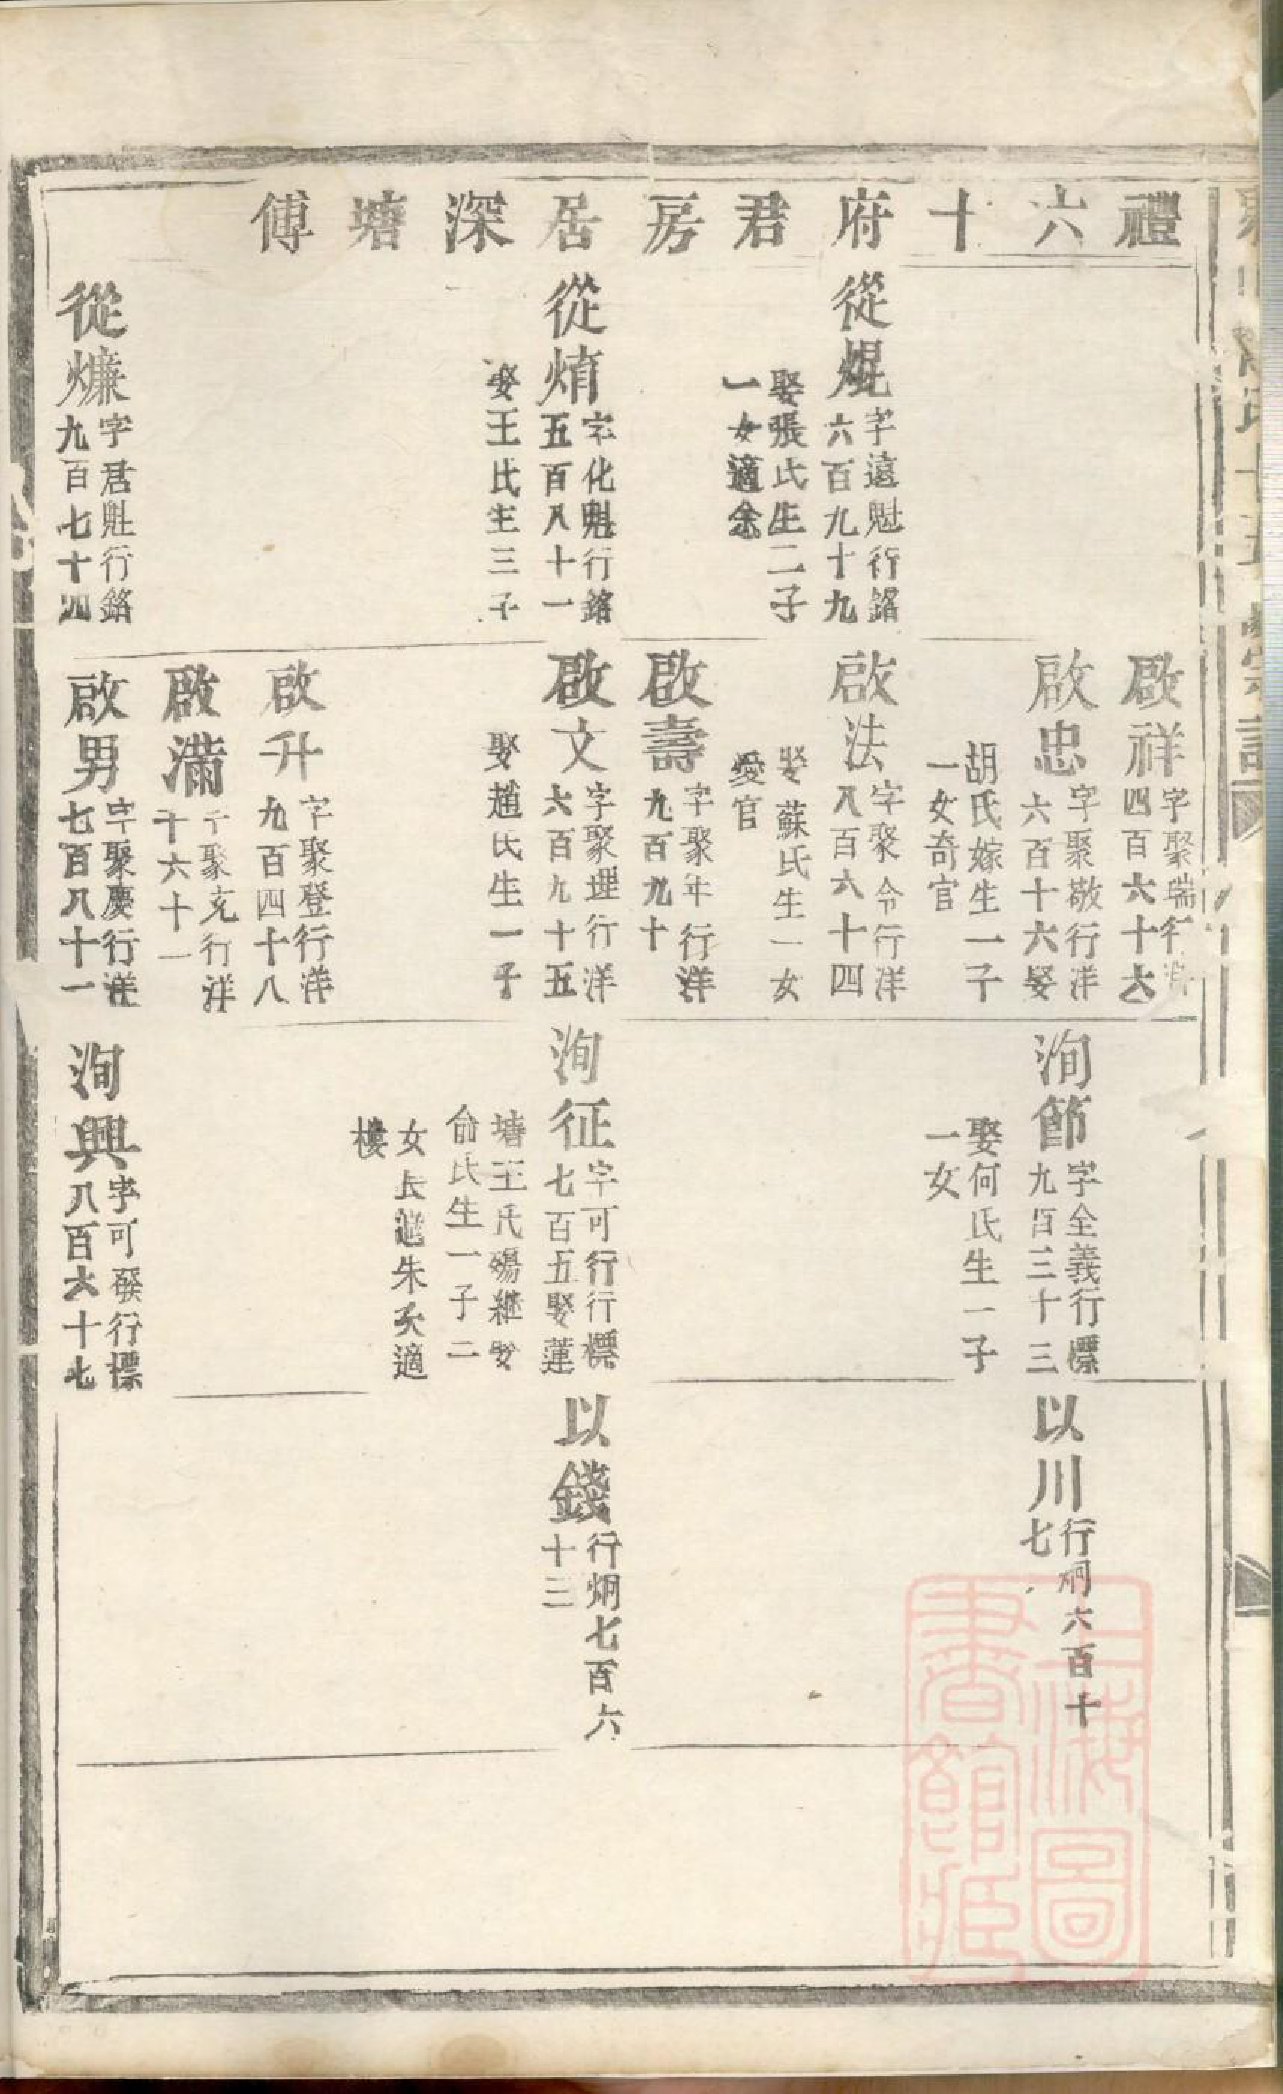 禮六十府君房居深塘傅
從焜
字遠魁行銘
六百九十九
娶張氏生二子
一女適余
從焴
字化魁行銘
五百八十一
娶王氏生三子
從爊
字君魁行銘
九百七十四
啟祥
字聚瑞行洋
四百六十六
啟忠
字聚敬行洋
六百十六娶
胡氏嫁生一子
一女奇官
啟法
字聚令行洋
八百六十四
娶蘇氏生一女
愛官
啟壽
字聚年行洋
九百九十
啟文
字聚理行洋
六百九十五
娶趙氏生一子
啟升
字聚登行洋
九百四十八
啟滿
字聚充行洋
十六十一
啟男
字聚慶行洋
七百八十一
洵節
字全義行標
九百三十三
娶何氏生一子
一女
洵征
字可行行標
七百五娶蓮
塘王氏殤繼娶
俞氏生一子二
女長適朱次適
樓
洵興
字可發行標
八百六十七
以川
行炯六百十
七
以錢
行炯七百六
十三
上海圖
書館藏